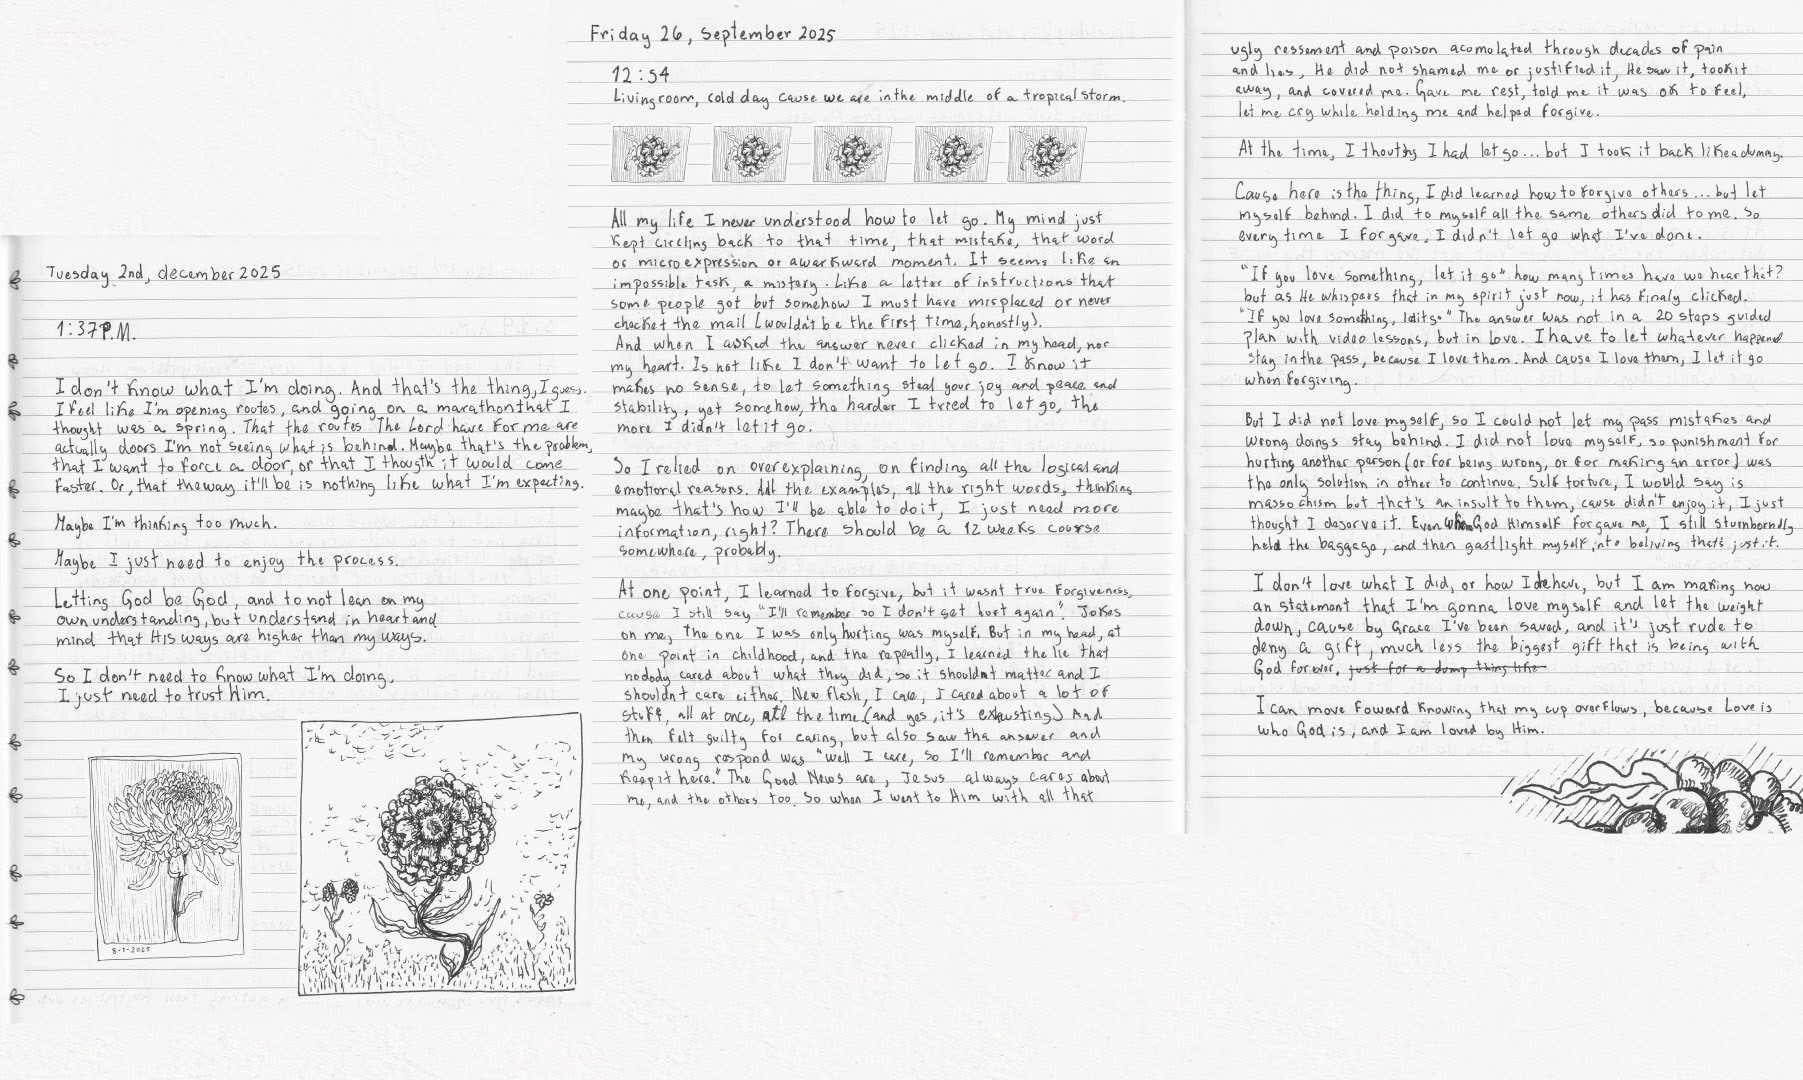 Tuesday 2nd, december 2025
1:37P.M.
I don't know what I'm doing. And that's the thing, I guess.
I feel like I'm opening routes, and going on a marathon that I
thought was a spring. That the routes The Lord have for me are
actually doors I'm not seeing what is behind. Maybe that's the problem,
that I want to force a door, or that I thougth it would come
faster. Or, that the way it'll be is nothing like what I'm expecting.
Maybe I'm thinking too much.
Maybe I just need to enjoy the process.
Letting God be God, and to not lean on my
own understanding, but understand in heart and
mind that His ways are higher than my ways.
So I don't need to know what I'm doing,
I just need to trust Him.
8-1-2025
Friday 26, September 2025
12:54
Livingroom, cold day cause we are in the middle of a tropical storm.
All my life I never understood how to let go. My mind just
kept circling back to that time, that mistake, that word
or micro expression or awarkward moment. It seems like an
impossible task, a mistery. Like a letter of instructions that
some people got but somehow I must have misplaced or never
checket the mail (wouldn't be the first time, honostly).
And when I asked the answer never clicked in my head, nor
my heart. Is not like I don't want to let go. I know it
makes no sense, to let something steal your joy and peace and
stability, yet somehow, the harder I tried to let go, the
more I didn't let it go.
So I relied on overexplaining, on finding all the logical and
emotional reasons. All the examples, all the right words, thinking
maybe that's how I'll be able to do it, I just need more
information, right? There should be a 12 weeks course
somewhere, probably.
At one point, I learned to forgive, but it wasnt true forgiveness,
cause I still say "I'll remember so I don't get hurt again". Jokes
on me, the one I was only hurting was myself. But in my head, at
one point in childhood, and the repeatly, I learned the lie that
nobody cared about what they did, so it shouldnt matter and I
shouldnt care either. New flash, I care, I cared about a lot of
stuff, all at once, all the time (and yes, it's exhusting) And
then felt guilty for caring, but also saw the answer and
my wrong respond was "well I care, so I'll remember and
keep it here." The Good News are, Jesus always cares about
me, and the others too, So when I went to Him with all that
ugly ressement and poison acumolated through decades of pain
and lies, He did not shamed me or justified it, He saw it, took it
away, and covered me. Gave me rest, told me it was ok to feel,
let me cry while holding me and helped forgive.
At the time, I thouths I had let go... but I took it back like a dummy.
Cause here is the thing, I did learned how to forgive others... but let
myself behind. I did to myself all the same others did to me. So
every time I forgave, I didn't let go what I've done.
"If you love something, let it go" how many times have we hear that?
but as He whispers that in my spirit just now, it has finaly clicked.
"If you love something, let it go" The answer was not in a 20 steps guided
plan with video lessons, but in love. I have to let whatever happened
stay in the pass, because I love them. And cause I love them, I let it go
when forgiving.
But I did not love myself, so I could not let my pass mistakes and
wrong doings stay behind. I did not love myself, so punishment for
hurting another person (or for being wrong, or for making an error) was
the only solution in other to continue. Self torture, I would say is
massochism but that's an insult to them, cause didn't enjoy it, I just
thought I deserve it. Even when God Himself forgave me, I still sturnborndly
held the baggage, and then gastlight myself into beliving that's just it.
I don't love what I did, or how I behave, but I am making now
an statement that I'm gonna love myself and let the weight
down, cause by Grace I've been saved, and it's just rude to
deny a gift, much less the biggest gift that is being with
God forever. just for a dump thing like
I can move foward knowing that my cup overflows, because Love is
who God is, and I am loved by Him.